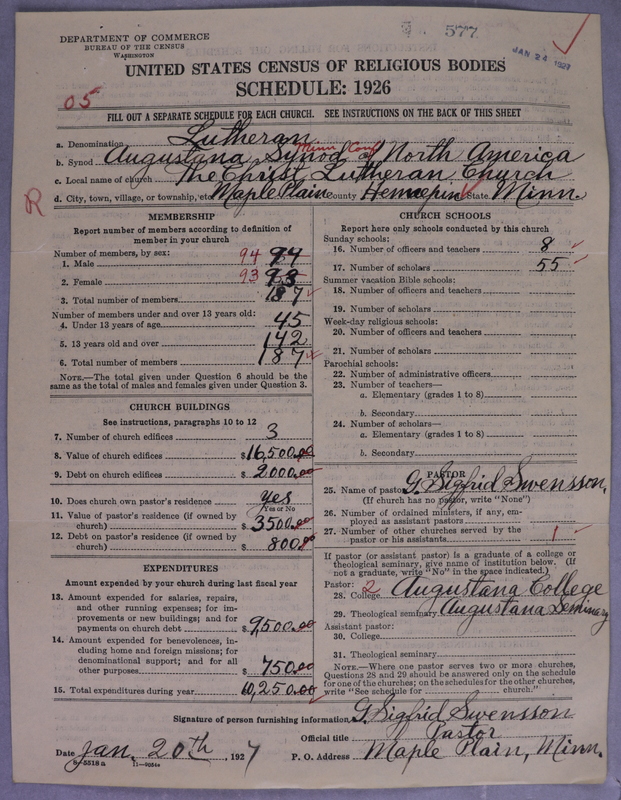 577
JAN 24 1927
DEPARTMENT OF COMMERCE
BUREAU OF THE CENSUS
WASHINGTON
UNITED STATES CENSUS OF RELIGIOUS BODIES
SCHEDULE: 1926
05
FILL OUT A SEPARATE SCHEDULE FOR EACH CHURCH. SEE INSTRUCTIONS ON THE BACK OF THIS SHEET
a. Denomination Lutheran
Minn. Conf.
b. Synod Augustana Synod of North America
c. Local name of church The Christ Lutheran Church
d. City, town, village, or township, etc. Maple Plain County Hennepin State Minn.
R
MEMBERSHIP
Report number of members according to definition of
member in your church
Number of members, by sex:
1. Male 94 94
2. Female 93 93
3. Total number of members 187
Number of members under and over 13 years old:
4. Under 13 years of age 45
5. 13 years old and over 142
6. Total number of members 187
NOTE.—The total given under Question 6 should be the
same as the total of males and females given under Question 3.
CHURCH BUILDINGS
See instructions, paragraphs 10 to 12
7. Number of church edifices 3
8. Value of church edifices $16,500.00
9. Debt on church edifices $2000.00
10. Does church own pastor's residence yes
Yes or No
11. Value of pastor's residence (if owned by
church) $3500.00
12. Debt on pastor's residence (if owned by
church) $800.00
EXPENDITURES
Amount expended by your church during last fiscal year
13. Amount expended for salaries, repairs,
and other running expenses; for im-
provements or new buildings; and for
payments on church debt $9500.00
14. Amount expended for benevolences, in-
cluding home and foreign missions; for
denominational support; and for all
other purposes $750.00
15. Total expenditures during year 10,250.00
CHURCH SCHOOLS
Report here only schools conducted by this church
Sunday schools:
16. Number of officers and teachers 8
17. Number of scholars 55
Summer vacation Bible schools:
18. Number of officers and teachers
19. Number of scholars
Week-day religious schools:
20. Number of officers and teachers
21. Number of scholars
Parochial schools:
22. Number of administrative officers
23. Number of teachers—
a. Elementary (grades 1 to 8)
b. Secondary
24. Number of scholars—
a. Elementary (grades 1 to 8)
b. Secondary
PASTOR
25. Name of pastor G. Sigfrid Swensson,
(If church has no pastor, write "None")
26. Number of ordained ministers, if any, em-
ployed as assistant pastors
27. Number of other churches served by the
pastor or his assistants 1
If pastor (or assistant pastor) is a graduate of a college or
theological seminary, give name of institution below. (If
not a graduate, write "No" in the space indicated.)
Pastor: 2
28. College Augustana College
29. Theological seminary Augustana Seminary
Assistant pastor:
30. College
31. Theological seminary
NOTE.—Where one pastor serves two or more churches,
Questions 28 and 29 should be answered only on the schedule
for one of the churches; on the schedules for the other churches,
write "See schedule for church."
Signature of person furnishing information G. Sigfrid Swensson
Official title Pastor
Date Jan. 20th, 1927 P. O. Address Maple Plain, Minn.
8-5518a